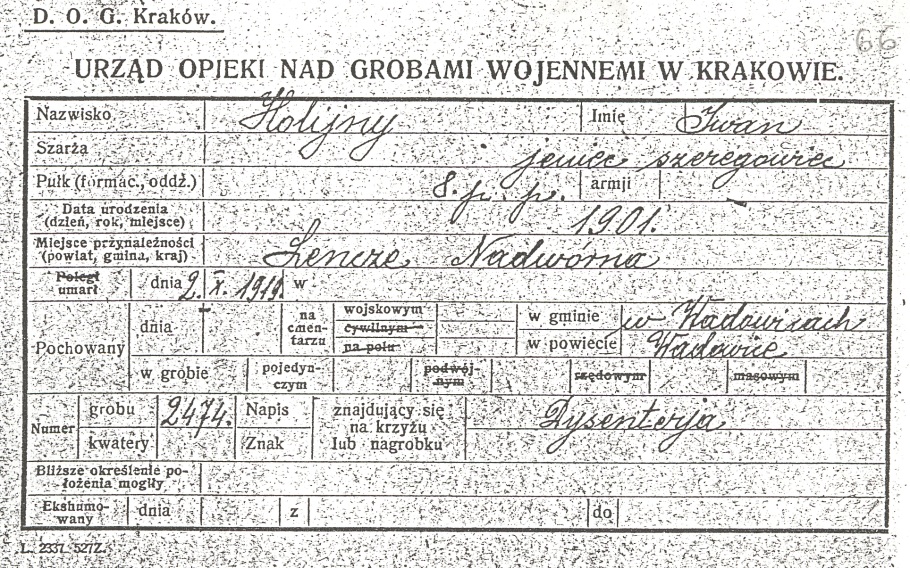 D. O. G. Kraków.
66
URZĄD OPIEKI NAD GROBAMI WOJENNEMI W KRAKOWIE.
Nazwisko Holijny Imię Iwan
Szarża jeniec szeregowiec
Pułk (formac., oddź.) 8. p. p. armji
Data urodzenia
(dzień, rok, miejsce) 1901.
Miejsce przynależności
(powiat, gmina, kraj) Lencze Nadwórna
Poległ
umarł dnia 2. X. 1919. w
Pochowany dnia na cmen-tarzu wojskowym w gminie w Wadowicach
cywilnym w powiecie Wadowice
na polu
w grobie pojedyn-czym podwój-nym rzędowym masowym
Numer grobu 2474. Napis znajdujący się na krzyżu lub nagrobku Dysenterja
kwatery Znak
Bliższe określenie po-
łożenia mogiły
Ekshumo-
wany dnia z do
L. 2337 527Z.